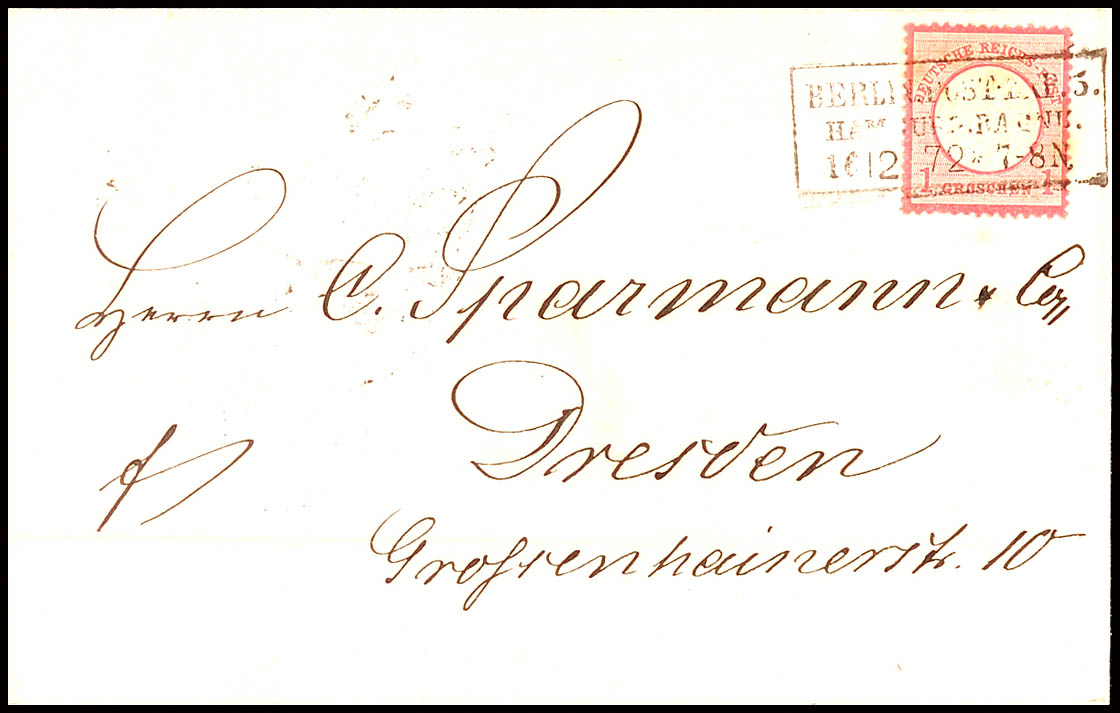 DEUTSCHE REICHS-POST
1 GROSCHEN 1
BERLIN POST-EXP. 3.
HAMBURG. BAHNH.
16 12 72 * 7-8N.
Herrn C. Sparmann & Co,,
Dresden
f/
Grossenhainerstr. 10